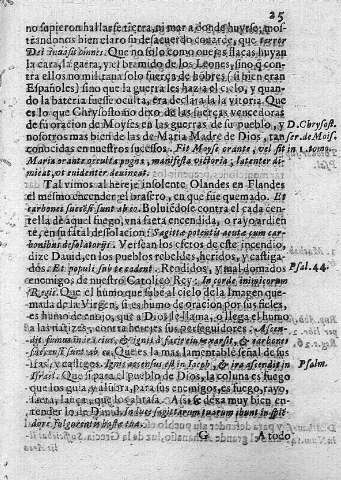 25
no supieron hallarse tierra, ni mar a donde huyrse, mos-
trandonos bien claro su desacuerdo couarde, que terror
Dei inuasit omnes. Que no solo como ouejas flacas huyan
la cara, la garra, y el bramido de los Leones, sino q̃ con-
tra ellos no militaua solo fuerças de hõbres (si bien eran
Españoles) sino que la guerra les hazia el cielo, y quan-
do la bateria fuesse oculta, era declarada la vitoria. Que
es lo que Chrysostomo dixo de las fuerças vencedoras
de su oracion de Moysen en las guerras de su pueblo, y
nosotros mas bien de las de Maria Madre de Dios, tan
conocidas en nuestros sucessos. Fit Moyse orante, vel sit in
Maria orante occulta pugna, manifesta victoria; latenter di-
micat, vt euidenter deuincat.
D. Chrysost.
ser. de Mois.
1. tomo.
Tal vimos al hereje insolente Olandes en Flandes
el mesmo encender el brasero, en que fue quemado. Et
carbones succensi sunt ab eo. Boluiendole contra el cada cen-
tella de aquel fuego, vna saeta encendida, o rayo ardien-
te, en su fatal dessolacion: Sagittæ potentis acutæ cum car-
bonibus desolatorijs. Versean los efetos de este incendio,
dize Dauid, en los pueblos rebeldes, heridos, y castiga-
dos. Et populi sub te cadent. Rendidos, y mal domados
enemigos, de nuestro Catolico Rey: In corde inimicorum
Regis. Que el humo que sube al cielo de la Imagen que-
mada de la Virgen, si es humo de oracion por sus fieles,
es humo de enojo, que a Dios le llama, o llega el humo
a las narizes, contra herejes sus perseguidores. Ascen-
dit fumus in ira eius, & ignis à facie eius
Psal. 44.
succensi sunt ab eo. Que es la mas lamentable señal de sus
iras, y castigos. Ignis accensus est in Iacob, & ira ascendit in
Israel. Que si para el pueblo de Dios, la coluna es fuego
que los guia y alũbra, para sus enemigos, es fuego, rayo,
saeta, lança, que los abrasa. Assi se dexa muy bien en-
tender lo de Dauid. In luce sagittarum tuarum ibunt in splẽ-
dore fulgurantis hastæ tuæ.
Psalm.
G
A todo